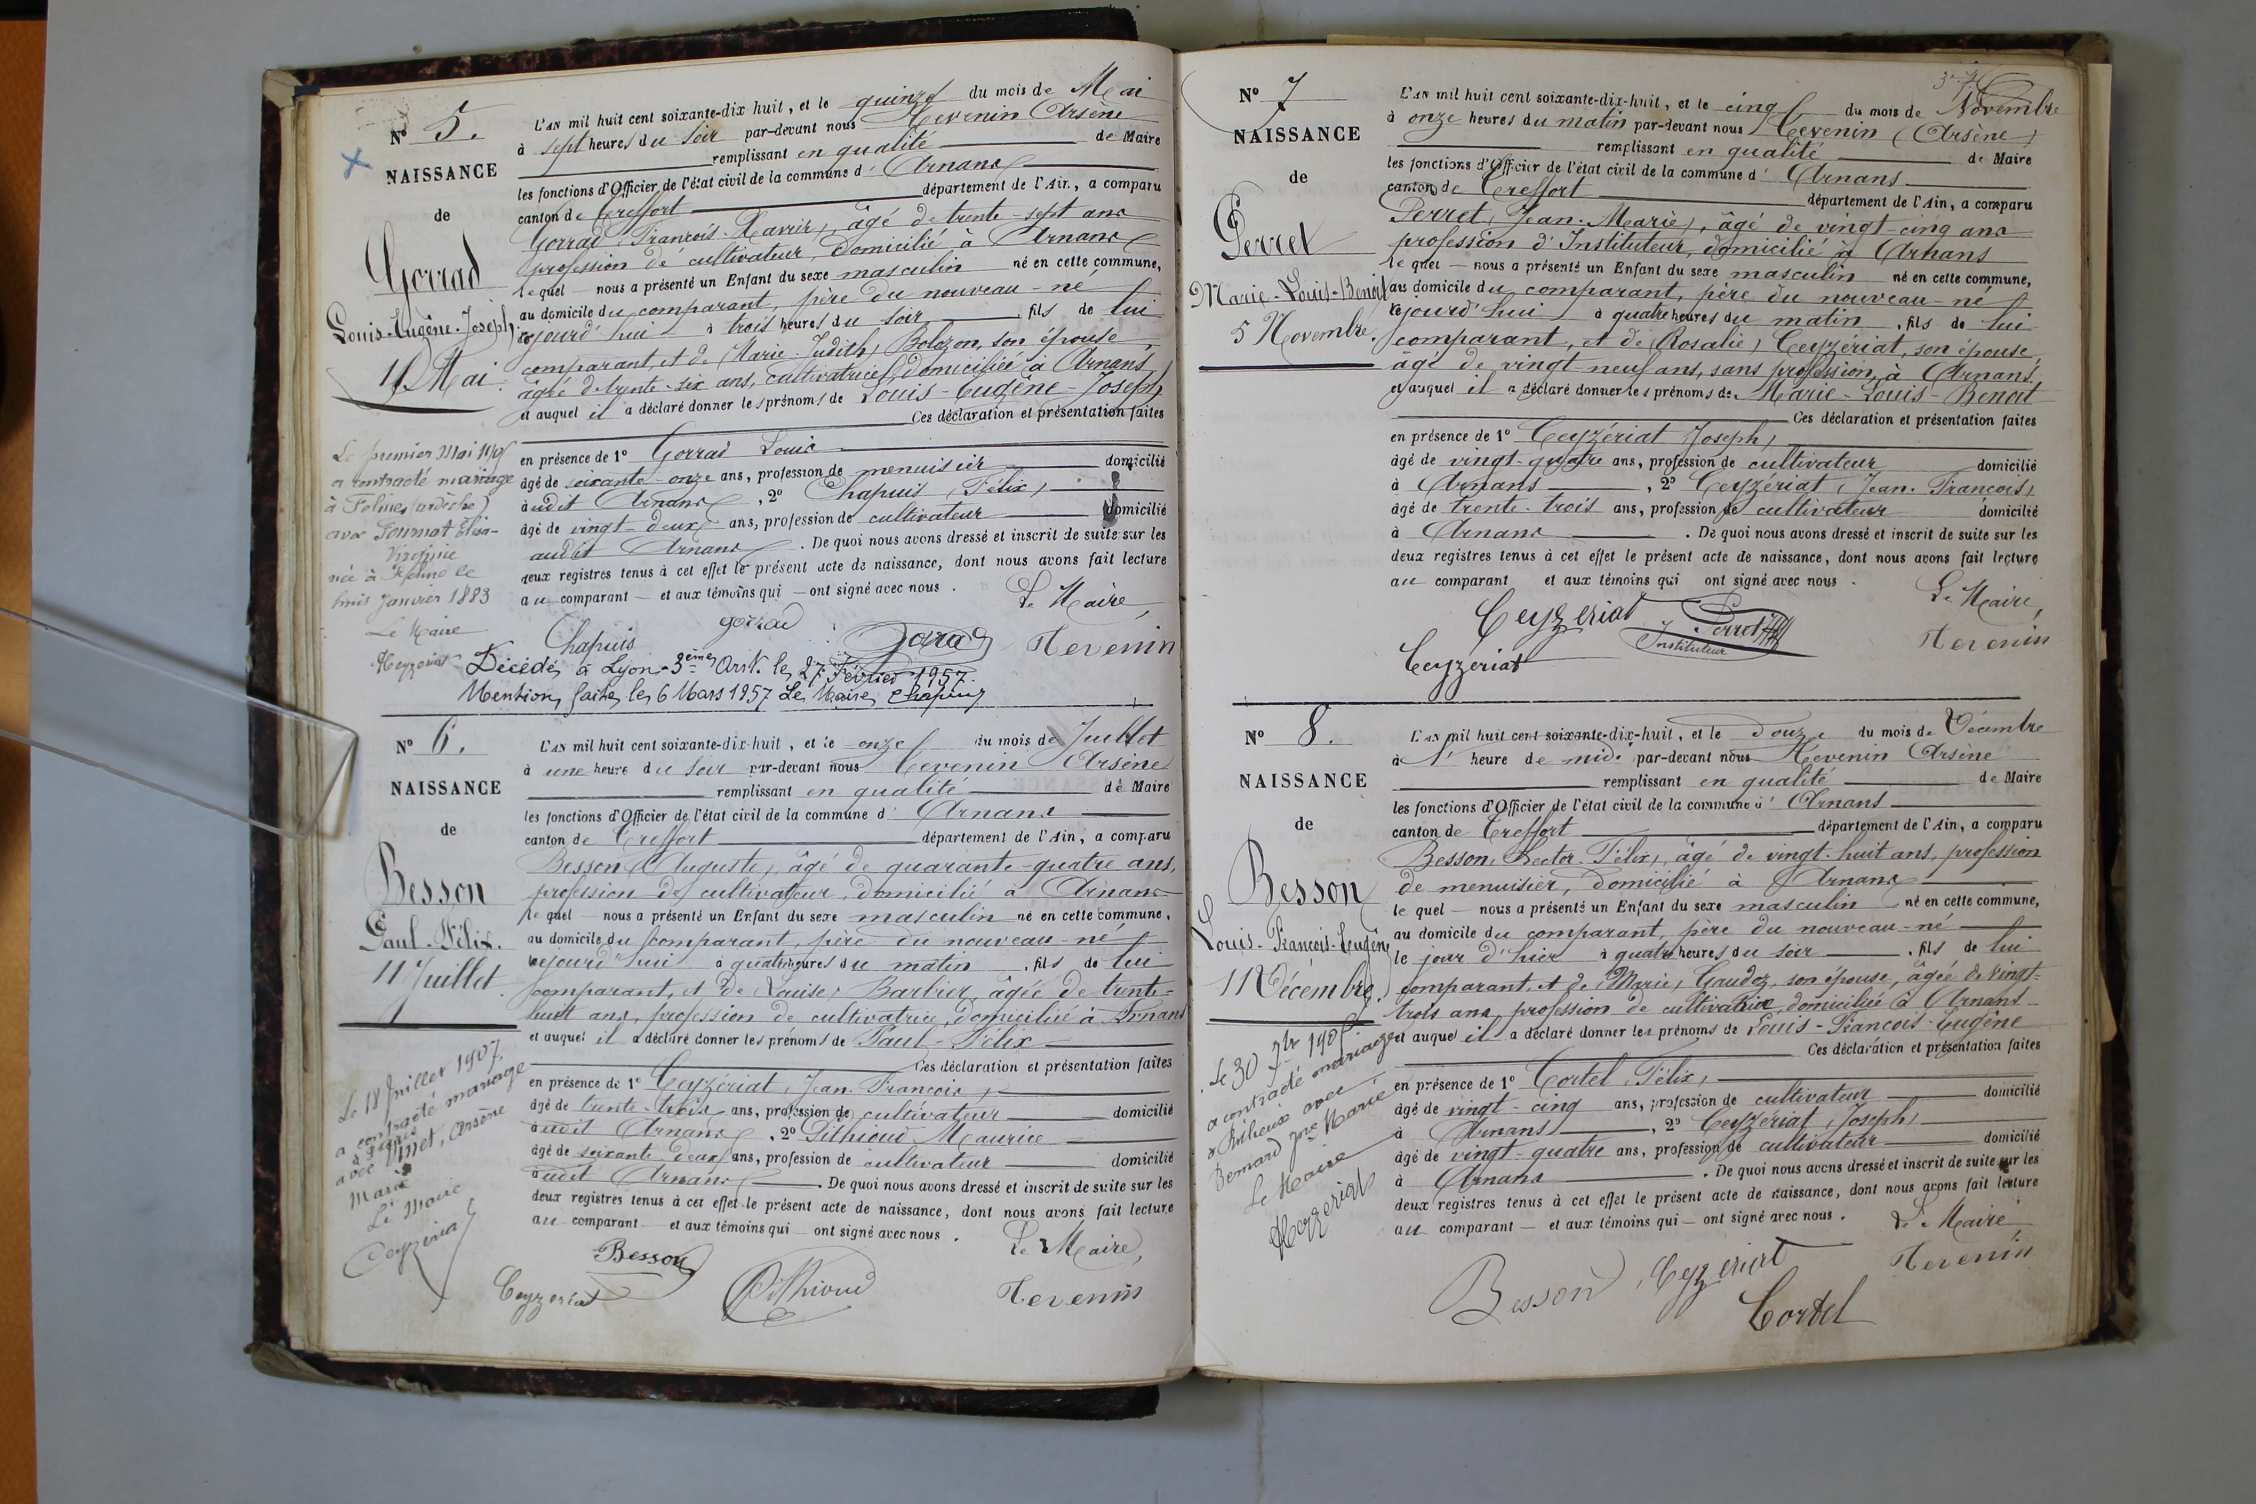 N° 5.
NAISSANCE
de
Gorrad
Louis-Eugène-Joseph.
15 Mai.
L'AN mil huit cent soixante-dix huit, et le quinze du mois de Mai
à sept heures du soir par-devant nous Tevenin Arsène
remplissant en qualité de Maire
les fonctions d'Officier de l'état civil de la commune d' Arnans
canton de Treffort département de l'Ain, a comparu
Gorrad, François-Xavier, âgé de trente-sept ans
profession de cultivateur, domicilié à Arnans
lequel nous a présenté un Enfant du sexe masculin né en cette commune,
au domicile du comparant, père du nouveau-né
cejourd'hui à trois heures du soir, fils de lui
comparant, et de Marie-Judith Bolozon, son épouse,
âgée de trente-six ans, cultivatrice, domiciliée à Arnans
et auquel il a déclaré donner les prénoms de Louis-Eugène-Joseph
Ces déclaration et présentation faites
en présence de 1° Gorrad Louis
âgé de soixante-onze ans, profession de menuisier domicilié
audit Arnans, 2° Chapuis (Félix)
âgé de vingt-deux ans, profession de cultivateur domicilié
audit Arnans. De quoi nous avons dressé et inscrit de suite sur les
deux registres tenus à cet effet le présent acte de naissance, dont nous avons fait lecture
au comparant et aux témoins qui ont signé avec nous.
Le Maire,
Chapuis gorrad Gorrad Tevenin
Le premier Mai
a contracté mariage
à Felines (ardèche)
avec
Virginie
née à le
huit Janvier 1883
Le Maire
Ceyzeriat
Décédé à Lyon-3ème Arrt. le 27 Février 1957.
Mention faite le 6 Mars 1957 Le Maire, Chapuis
N° 6.
NAISSANCE
de
Besson
Paul-Félix.
11 Juillet.
L'AN mil huit cent soixante-dix-huit, et le onze du mois de Juillet
à une heure du soir par-devant nous Tevenin Arsène
remplissant en qualité de Maire
les fonctions d'Officier de l'état civil de la commune d' Arnans
canton de Treffort département de l'Ain, a comparu
Besson (Auguste), âgé de quarante-quatre ans,
profession de cultivateur, domicilié à Arnans
lequel nous a présenté un Enfant du sexe masculin né en cette commune,
au domicile du comparant, père du nouveau-né
cejourd'hui à quatre heures du matin, fils de lui
comparant, et de Louise Barbier, âgée de trente-
huit ans, profession de cultivatrice, domiciliée à Arnans
et auquel il a déclaré donner les prénoms de Paul-Félix
Ces déclaration et présentation faites
en présence de 1° Ceyzériat, Jean-François,
âgé de trente-trois ans, profession de cultivateur domicilié
audit Arnans, 2° Pithioud Maurice
âgé de soixante-deux ans, profession de cultivateur domicilié
audit Arnans. De quoi nous avons dressé et inscrit de suite sur les
deux registres tenus à cet effet le présent acte de naissance, dont nous avons fait lecture
au comparant et aux témoins qui ont signé avec nous.
Le Maire,
Besson
Ceyzeriat Pithioud Tevenin
Le 18 Juillet 1907,
a contracté mariage
avec Pinet, Arsène
Marie
Le Maire
Ceyzeriat
N° 7
NAISSANCE
de
Perret
Marie-Louis-Benoit
5 Novembre.
L'AN mil huit cent soixante-dix-huit, et le cinq du mois de Novembre
à onze heures du matin par-devant nous Tevenin (Arsène)
remplissant en qualité de Maire
les fonctions d'Officier de l'état civil de la commune d' Arnans
canton de Treffort département de l'Ain, a comparu
Perret, Jean-Marie, âgé de vingt-cinq ans
profession d'Instituteur, domicilié à Arnans
lequel nous a présenté un Enfant du sexe masculin né en cette commune,
au domicile du comparant, père du nouveau-né
cejourd'hui à quatre heures du matin, fils de lui
comparant, et de Rosalie Ceyzériat, son épouse,
âgé de vingt-neuf ans, sans profession, à Arnans,
et auquel il a déclaré donner les prénoms de Marie-Louis-Benoit
Ces déclaration et présentation faites
en présence de 1° Ceyzériat Joseph,
âgé de vingt-quatre ans, profession de cultivateur domicilié
à Arnans, 2° Ceyzériat (Jean-François)
âgé de trente-trois ans, profession de cultivateur domicilié
à Arnans. De quoi nous avons dressé et inscrit de suite sur les
deux registres tenus à cet effet le présent acte de naissance, dont nous avons fait lecture
au comparant et aux témoins qui ont signé avec nous.
Le Maire,
Ceyzeriat Perret
Instituteur
Tevenin
Ceyzériat
N° 8.
NAISSANCE
de
Besson
Louis-François-Eugène
11 Décembre.
L'AN mil huit cent soixante-dix-huit, et le Douze du mois de Décembre
à 1 heure de midi par-devant nous Tevenin Arsène
remplissant en qualité de Maire
les fonctions d'Officier de l'état civil de la commune d' Arnans
canton de Treffort département de l'Ain, a comparu
Besson, Hector-Félix, âgé de vingt-huit ans, profession
de menuisier, domicilié à Arnans
lequel nous a présenté un Enfant du sexe masculin né en cette commune,
au domicile du comparant, père du nouveau-né
le jour d'hier à quatre heures du soir, fils de lui
comparant, et de Marie Gaudez, son épouse, âgée de vingt-
trois ans, profession de cultivatrice, domiciliée à Arnans
et auquel il a déclaré donner les prénoms de Louis-François-Eugène
Ces déclaration et présentation faites
en présence de 1° Cortel, Félix,
âgé de vingt-cinq ans, profession de cultivateur domicilié
à Arnans, 2° Ceyzériat (Joseph)
âgé de vingt-quatre ans, profession de cultivateur domicilié
à Arnans. De quoi nous avons dressé et inscrit de suite sur les
deux registres tenus à cet effet le présent acte de naissance, dont nous avons fait lecture
au comparant et aux témoins qui ont signé avec nous.
Le Maire,
Besson Ceyzeriat Tevenin
Cortel
Le 30
a contracté mariage
avec
Bernard Marie
Le Maire
Ceyzeriat